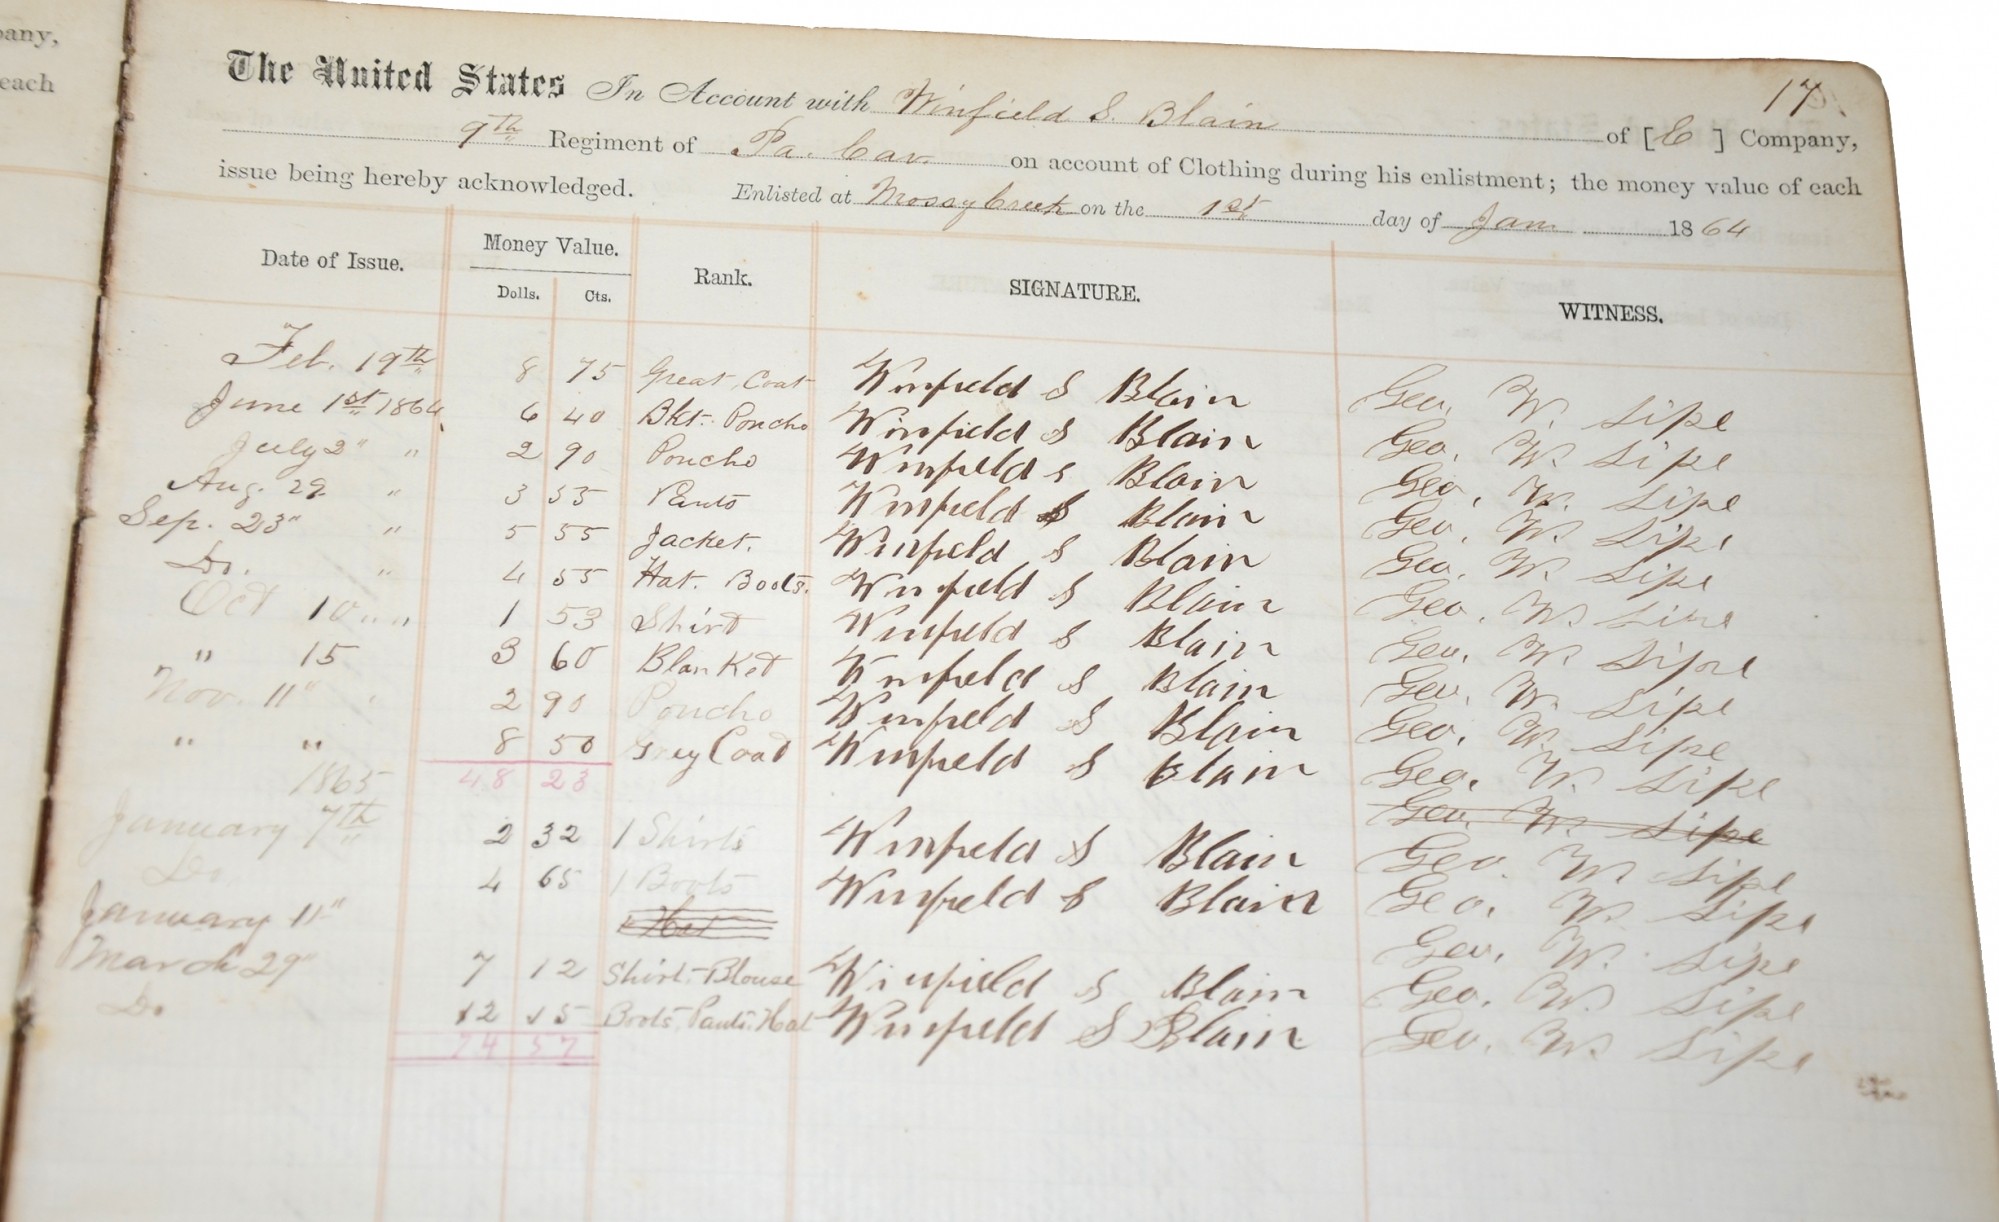 pany,
each
17
The United States In Account with Winfield S. Blain of [E] Company,
9th Regiment of Pa. Cav. on account of Clothing during his enlistment; the money value of each
issue being hereby acknowledged. Enlisted at Mossy Creek on the 1st day of Jan 1864
Date of Issue. Money Value. Rank. SIGNATURE. WITNESS.
Dolls. Cts.
Feb. 19th 8 75 Great Coat Winfield S Blain Geo. W. Sipe
June 1st 1864 6 40 Bkt. Poncho Winfield S Blain Geo. W. Sipe
July 2" " 2 90 Poncho Winfield S Blain Geo. W. Sipe
Aug. 29 " 3 55 Pants Winfield S Blain Geo. W. Sipe
Sep. 23" " 5 55 Jacket. Winfield S Blain Geo. W. Sipe
Do. " 4 55 Hat. Boots. Winfield S Blain Geo. W. Sipe
Oct 10 " " 1 53 Shirt Winfield S Blain Geo. W. Sipe
" 15 3 60 Blanket Winfield S Blain Geo. W. Sipe
Nov. 11" 2 90 Poncho Winfield S Blain Geo. W. Sipe
" " 8 50 Grey Coat Winfield S Blain Geo. W. Sipe
1865 48 23 Geo. W. Sipe
January 7th 2 32 1 Shirts Winfield S Blain Geo. W. Sipe
Do. 4 65 1 Boots Winfield S Blain Geo. W. Sipe
January 11" Hat Geo. W. Sipe
March 29" 7 12 Shirt. Blouse Winfield S Blain Geo. W. Sipe
Do 12 15 Boots. Pants. Hat Winfield S Blain Geo. W. Sipe
74 57